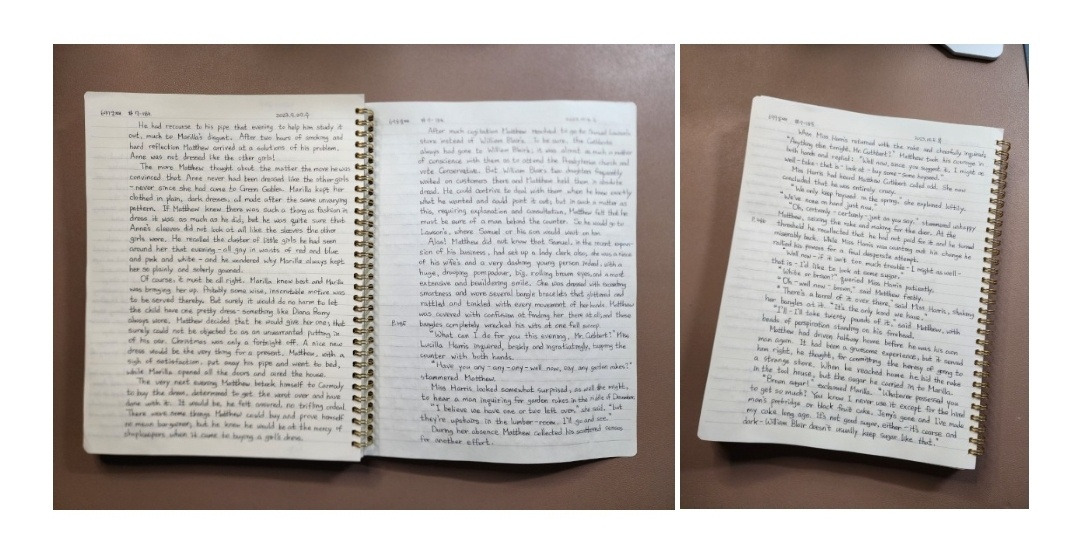 #7-184
He had recourse to his pipe that evening to help him study it
out, much to Marilla's disgust. After two hours of smoking and
hard reflection Matthew arrived at a solution of his problem.
Anne was not dressed like the other girls!
The more Matthew thought about the matter the more he was
convinced that Anne never had been dressed like the other girls
- never since she had come to Green Gables. Marilla kept her
clothed in plain, dark dresses, all made after the same unvarying
pattern. If Matthew knew there was such a thing as fashion in
dress it was as much as he did; but he was quite sure that
Anne's sleeves did not look at all like the sleeves the other
girls wore. He recalled the cluster of little girls he had seen
around her that evening - all gay in waists of red and blue
and pink and white - and he wondered why Marilla always kept
her so plainly and soberly gowned.
Of course, it must be all right. Marilla knew best and Marilla
was bringing her up. Probably some wise, inscrutable motive was
to be served thereby. But surely it would do no harm to let
the child have one pretty dress - something like Diana Barry
always wore. Matthew decided that he would give her one; that
surely could not be objected to as an unwarranted putting in
of his oar. Christmas was only a fortnight off. A nice new
dress would be the very thing for a present. Matthew, with a
sigh of satisfaction, put away his pipe and went to bed,
while Marilla opened all the doors and aired the house.
The very next evening Matthew betook himself to Carmody
to buy the dress, determined to get the worst over and have
done with it. It would be, he felt assured, no trifling ordeal.
There were some things Matthew could buy and prove himself
no mean bargainer; but he knew he would be at the mercy of
shopkeepers when it came to buying a girl's dress.
After much cogitation Matthew resolved to go to Samuel Lawson's
store instead of William Blair's. To be sure, the Cuthberts
always had gone to William Blair's; it was almost as much a matter
of conscience with them as to attend the Presbyterian church and
vote Conservative. But William Blair's two daughters frequently
waited on customers there and Matthew held them in absolute
dread. He could contrive to deal with them when he knew exactly
what he wanted and could point it out; but in such a matter as
this, requiring explanation and consultation, Matthew felt that he
must be sure of a man behind the counter. So he would go to
Lawson's, where Samuel or his son would wait on him.
Alas! Matthew did not know that Samuel, in the recent expan-
sion of his business, had set up a lady clerk also; she was a niece
of his wife's and a very dashing young person indeed, with a
huge, drooping pompadour, big, rolling brown eyes, and a most
extensive and bewildering smile. She was dressed with exceeding
smartness and wore several bangle bracelets that glittered and
rattled and tinkled with every movement of her hands. Matthew
was covered with confusion at finding her there at all; and those
bangles completely wrecked his wits at one fell swoop.
"What can I do for you this evening, Mr. Cuthbert?" Miss
Lucilla Harris inquired, briskly and ingratiatingly, tapping the
counter with both hands.
"Have you any - any - any - well now, say any garden rakes?"
stammered Matthew.
Miss Harris looked somewhat surprised, as well she might,
to hear a man inquiring for garden rakes in the middle of December.
"I believe we have one or two left over," she said, "but
they're upstairs in the lumber-room. I'll go and see."
During her absence Matthew collected his scattered senses
for another effort.
When Miss Harris returned with the rake and cheerfully inquired:
"Anything else tonight, Mr. Cuthbert?" Matthew took his courage in
both hands and replied: "Well now, since you suggest it, I might as
well - take - that is - look at - buy some - some hayseed."
Miss Harris had heard Matthew Cuthbert called odd. She now
concluded that he was entirely crazy.
"We only keep hayseed in the spring," she explained loftily.
"We've none on hand just now."
"Oh, certainly - certainly - just as you say," stammered unhappy
Matthew, seizing the rake and making for the door. At the
threshold he recollected that he had not paid for it and he turned
miserably back. While Miss Harris was counting out his change he
rallied his powers for a final desperate attempt.
"Well now - if it isn't too much trouble - I might as well -
that is - I'd like to look at some sugar."
"White or brown?" queried Miss Harris patiently.
"Oh - well now - brown," said Matthew feebly.
"There's a barrel of it over there," said Miss Harris, shaking
her bangles at it. "It's the only kind we have."
"I'll - I'll take twenty pounds of it," said Matthew, with
beads of perspiration standing on his forehead.
Matthew had driven halfway home before he was his own
man again. It had been a gruesome experience, but it served
him right, he thought, for committing the heresy of going to
a strange store. When he reached home he hid the rake
in the tool house, but the sugar he carried in to Marilla.
"Brown sugar!" exclaimed Marilla. "Whatever possessed you
to get so much? You know I never use it except for the hired
man's porridge or black fruit cake. Jerry's gone and I've made
my cake long ago. It's not good sugar, either - it's coarse and
dark - William Blair doesn't usually keep sugar like that."